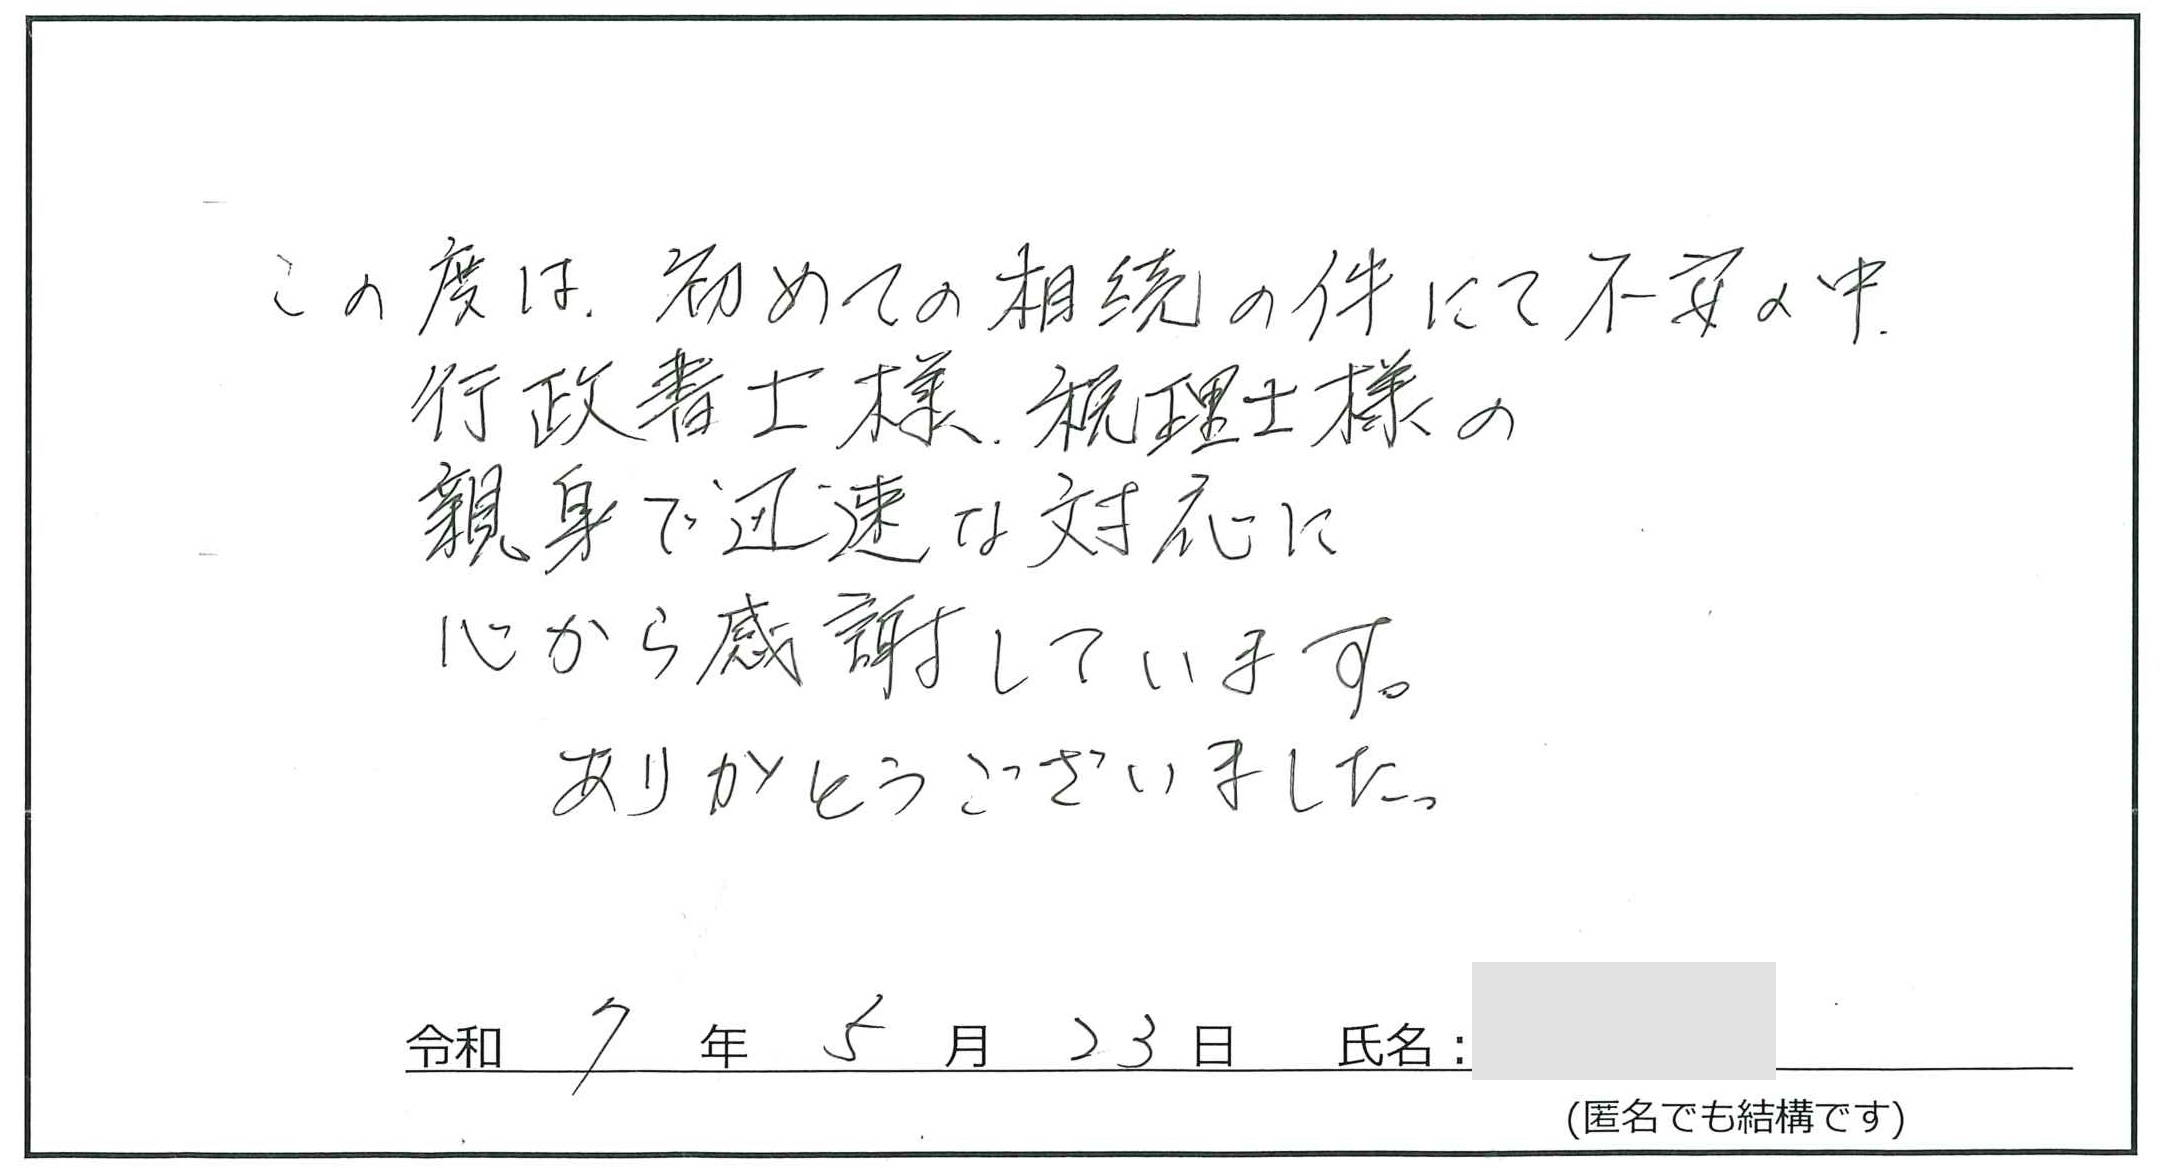 この度は、初めての相続の件にて不安の中、
行政書士様、税理士様の
親身で迅速な対応に
心から感謝しています。
ありがとうございました。
令和 7 年 5 月 23 日 氏名：
(匿名でも結構です)